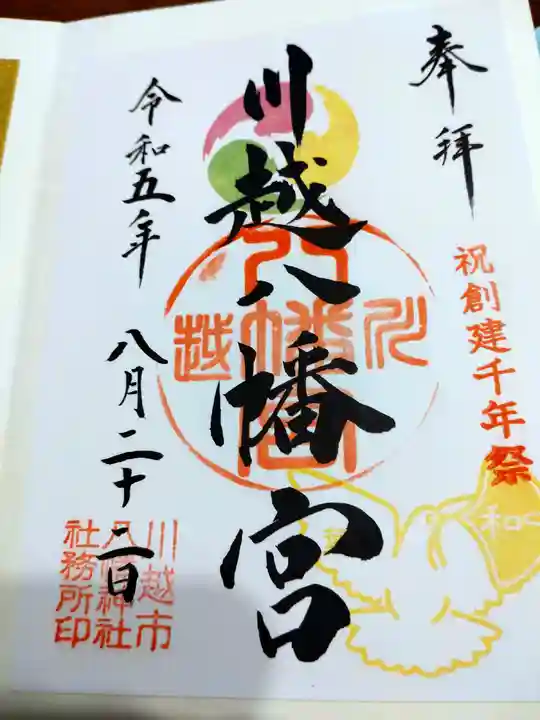 奉拝
祝創建千年祭
川越八幡宮
川越
八幡宮
令和五年 八月二十二日
川越市
八幡神社
社務所印
和